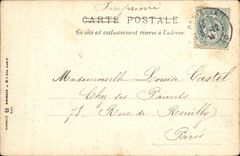 Imprimé
CARTE POSTALE
Ce côté est exclusivement réservé à l'adresse.
Mademoiselle Louise Castel
Chez ses Parents
78, Rue de Reuilly
Paris